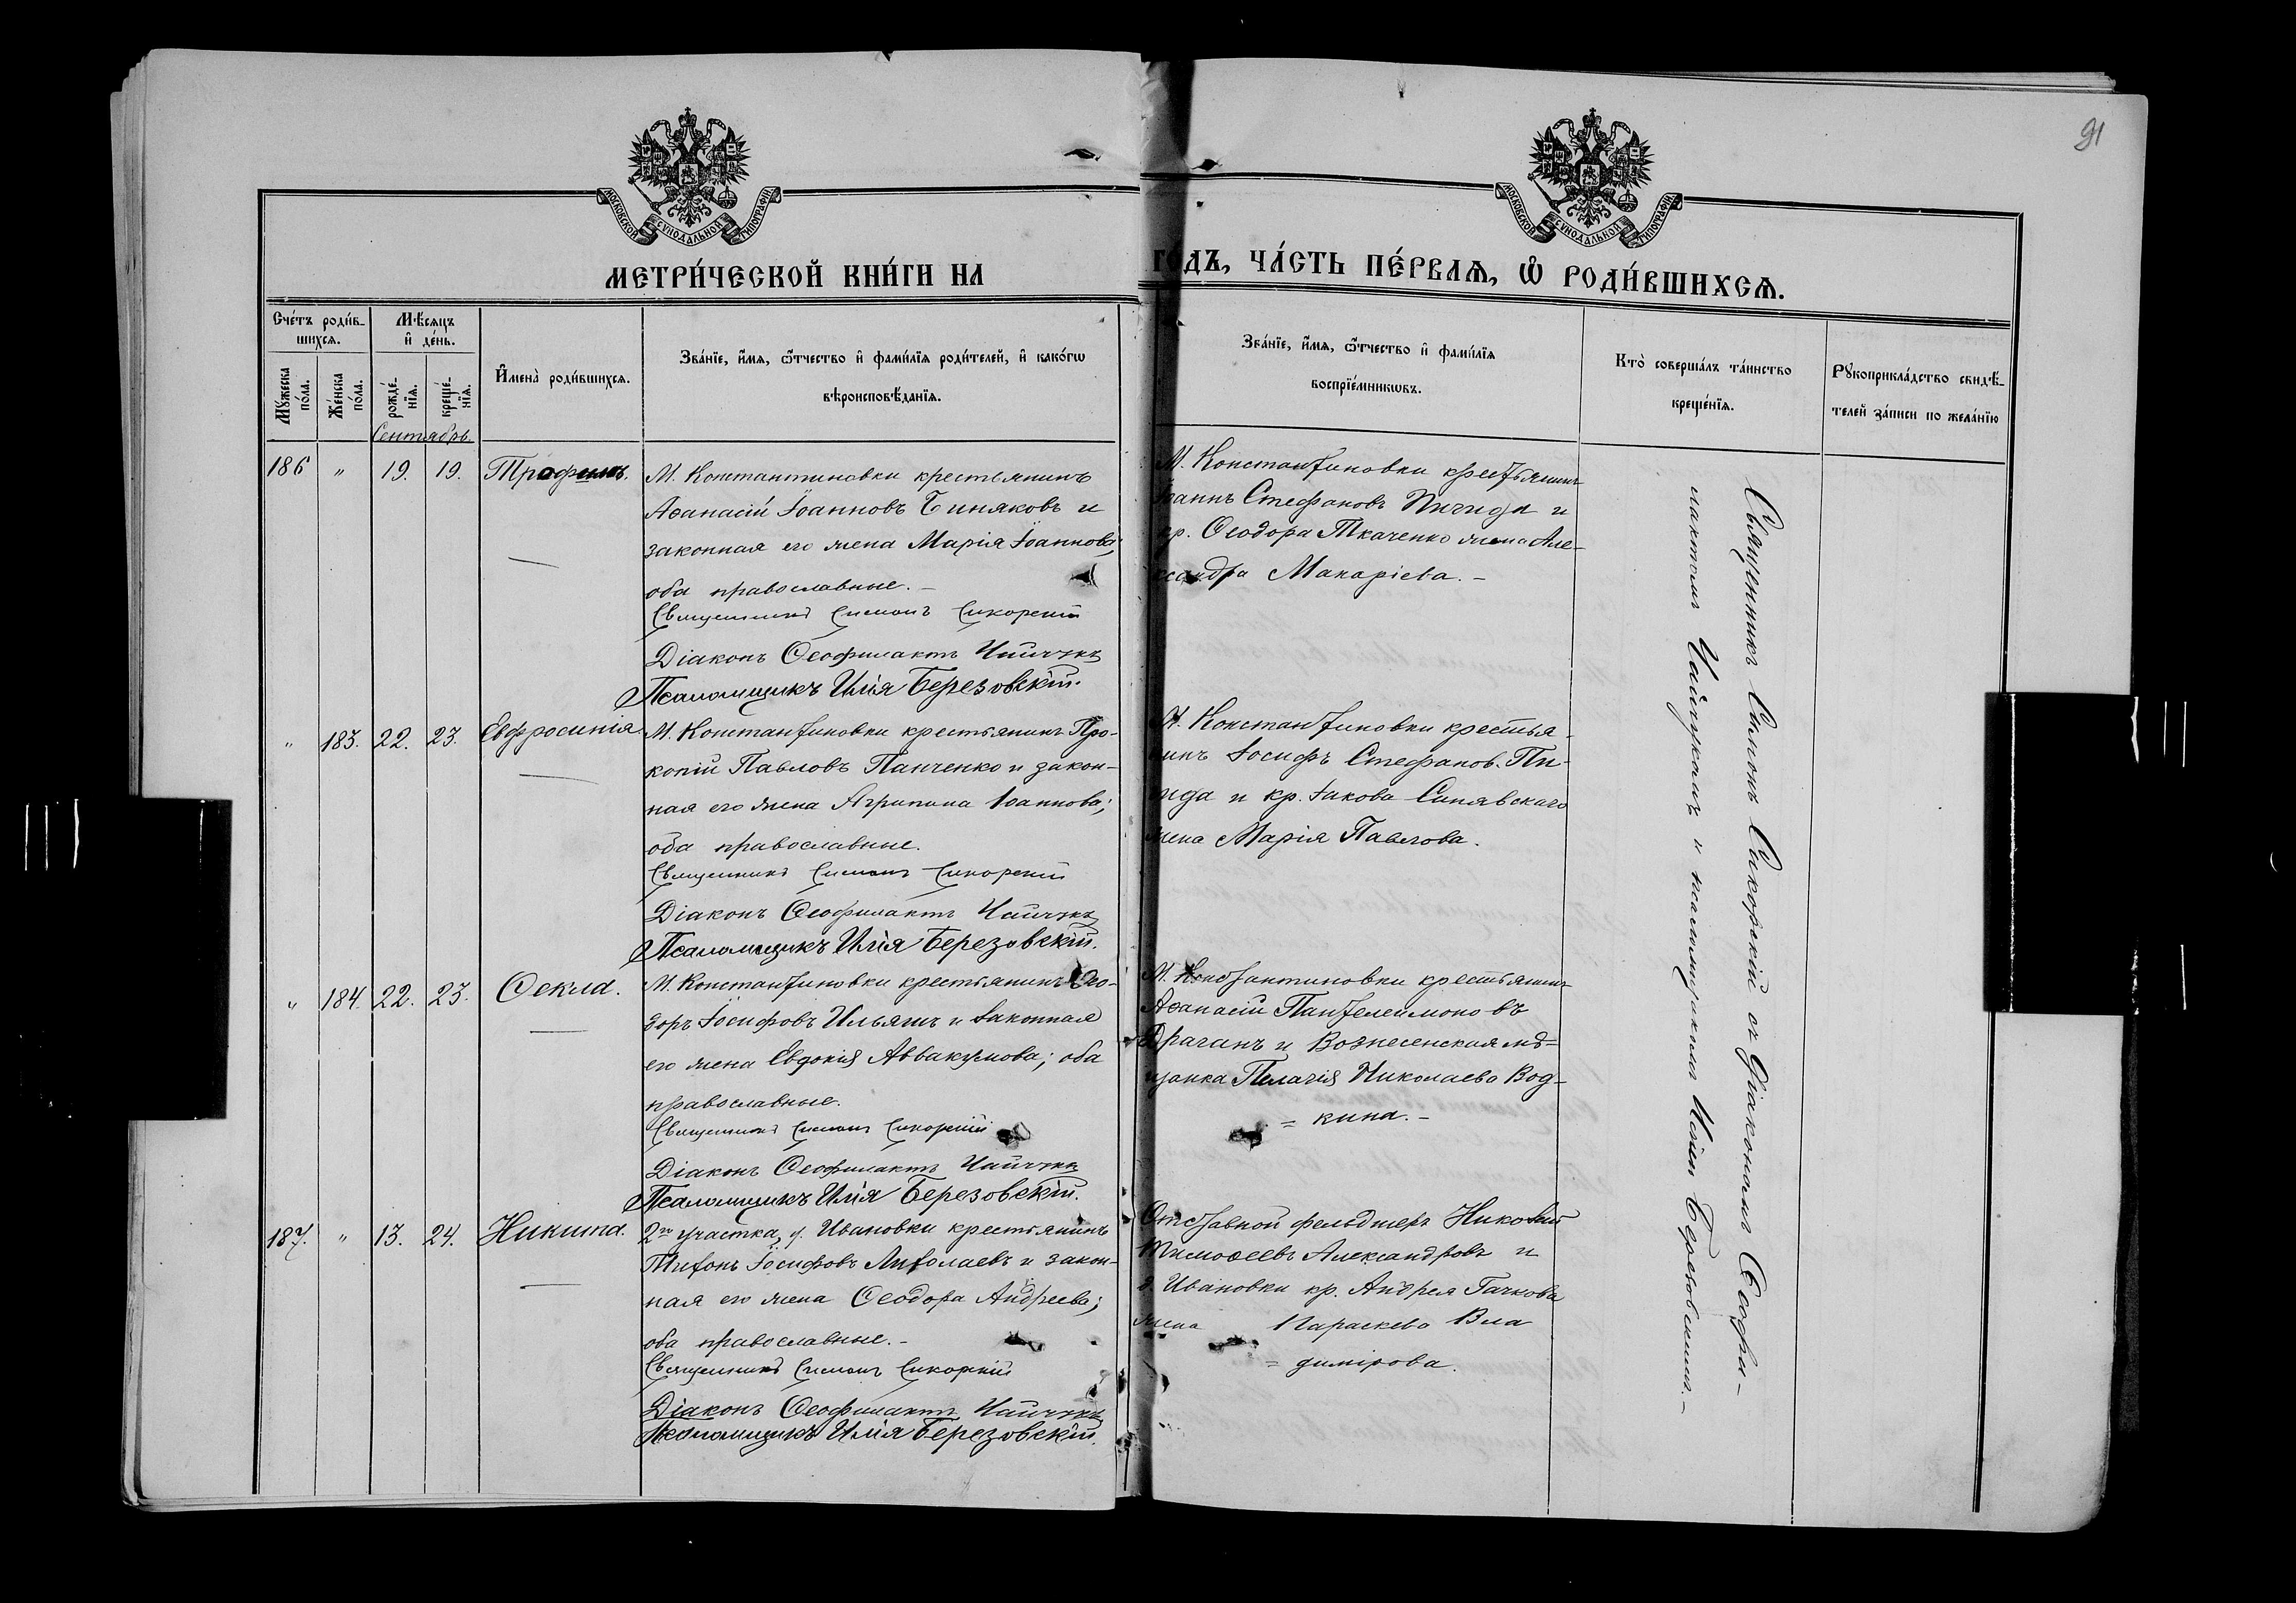 91
МОСКОВСКОЙ СѴНОДАЛЬНОЙ ТИПОГРАФІИ
МОСКОВСКОЙ СѴНОДАЛЬНОЙ ТИПОГРАФІИ
МЕТРИ́ЧЕСКОЙ КНИ́ГИ НА
ГО́ДЪ, ЧА́СТЬ ПЕ́РВАѦ, Ѿ РОДИ́ВШИХСѦ.
Сче́тъ роди́в-
шихсѧ.
Мѣ́сѧцъ
и҆ де́нь.
Мꙋжеска по́ла.
Же́нска по́ла.
рожде́-
нїѧ.
креще́-
нїѧ.
И҆мена̀ роди́вшихсѧ.
Зва́нїе, и҆́мѧ, ѻ҆́тчество и҆ фами́лїѧ роди́телей, и҆ како́гѡ
вѣроисповѣ́данїѧ.
Зва́нїе, и҆́мѧ, ѻ҆́тчество и҆ фами́лїѧ
воспрїе́мникѡвъ.
Кто̀ соверша́лъ та́инство
креще́нїѧ.
Рꙋкоприкла́дство свидѣ́-
телей за́писи по жела́нїю
Сентябрь.
186 " 19. 19. Трофимъ.
М. Константиновки крестьянинъ
Аѳанасій Іоанновъ Биняковъ и
законная его жена Марія Іоаннова;
оба православные. –
Священникъ Симонъ Сикорскій
Діаконъ Ѳеофилактъ
Псаломщикъ Илія Березовскій.
М. Константиновки крестьянинъ
Іоаннъ Стефановъ и
кр. Ѳеодора Ткаченко жена Але-
ксандра Макаріева. –
" 183. 22. 23. Евфросинія
М. Константиновки крестьянинъ Про-
копій Павловъ Панченко и закон-
ная его жена Агрипина Іоаннова;
оба православные.
Священникъ Симонъ Сикорскій
Діаконъ Ѳеофилактъ
Псаломщикъ Илія Березовскій.
М. Константиновки крестья-
нинъ Іосифъ Стефанов.
и кр. Іакова Синявскаго
жена Марія Павлова.
" 184. 22. 23. Ѳекла.
М. Константиновки крестьянинъ Ѳео-
доръ Іосифовъ Ильяшъ и законная
его жена Евдокія Аввакумова; оба
православные.
Священникъ Симонъ Сикорскій
Діаконъ Ѳеофилактъ
Псаломщикъ Илія Березовскій.
М. Константиновки крестьянинъ
Аѳанасій Пантелеймоновъ
Драганъ и Вознесенская мѣ-
щанка Пелагія Николаева Вод-
= кина. –
187. " 13. 24. Никита.
2го участка, д. Ивановки крестьянинъ
Іосифовъ и закон-
ная его жена Ѳеодора Андреева;
оба православные. –
Священникъ Симонъ Сикорскій
Діаконъ Ѳеофилактъ
Псаломщикъ Илія Березовскій.
Отставной фельдшеръ Николай
Тимоѳеевъ Александровъ и
д. Ивановки кр. Андрея Гачкова
жена Параскева Вла
= димірова.
Священникъ Симонъ Сикорскій съ діакономъ Ѳеофи-
лактомъ и псаломщикомъ Иліею Березовскимъ. –